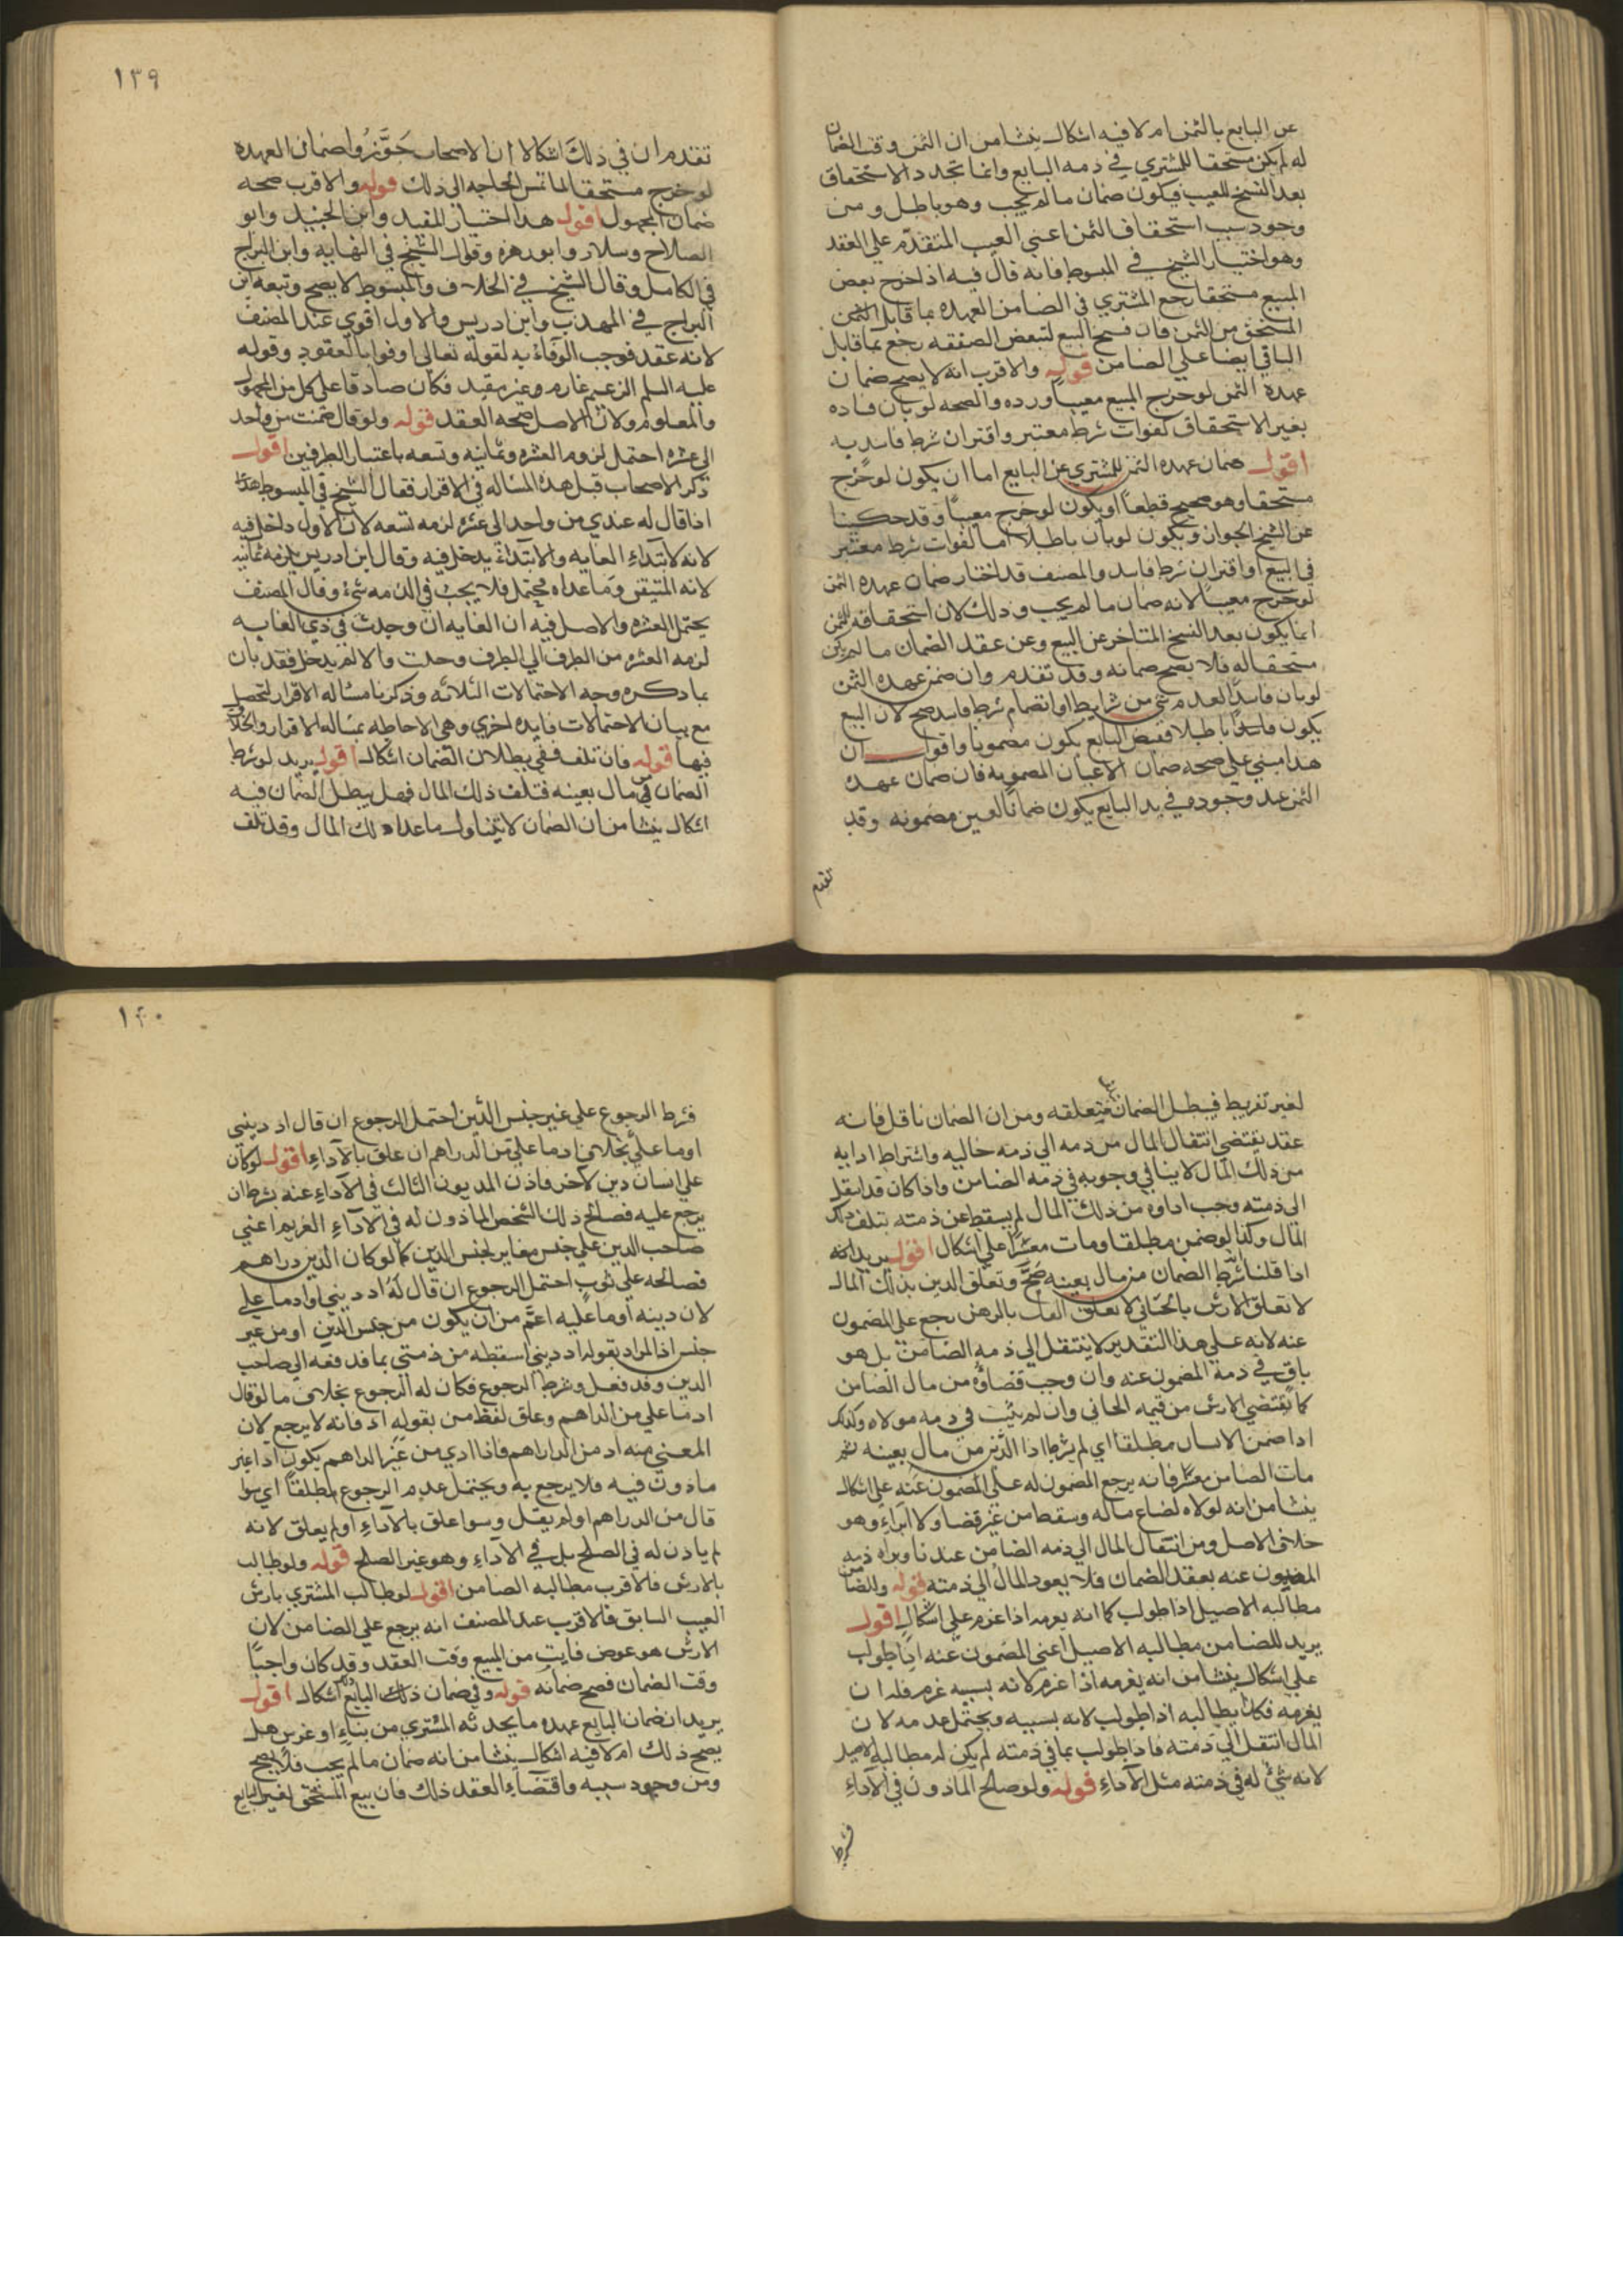 عن البايع بالثمن ام لا فيه اشكال ينشا من ان الثمن وقت الضمان
له لم يكن مستحقا للمشتري في ذمه البايع وانما تجدد الاستحقاق
بعد الفسخ للعيب فيكون ضمان ما لم يجب وهو باطل ومن
وجود سبب استحقاف الثمن اعني العيب المتقدم علي العقد
وهو اختيار الشيخ في المبسوط فانه قال فيه اذا خرج بعض
المبيع مستحقا رجع المشتري في الضامن العهده بما قابل الثمن
المستحق من الثمن فان فسخ البيع لتبعض الصفقه رجع بما قابل
الباقي ايضا علي الضامن قوله والاقرب انه لا يصح ضمان
عهدة الثمن لو خرج المبيع معيبا ورده والصحه لو بان فساده
بغير الاستحقاق كفوات شرط معتبر واقتران شرط فاسد به
اقول ضمان عهده الثمن للمشتري عن البايع اما ان يكون لو خرج
مستحقا وهو صحيح قطعا او يكون لو خرج معيبا وقد حكينا
عن الشيخ الجواز ويكون لو بان باطلا اما لفوات شرط معتبر
في البيع او اقتران شرط فاسد والمصنف قد اختار ضمان عهده الثمن
لو خرج معيبا لانه ضمان ما لم يجب وذلك لان استحقاقه للثمن
انما يكون بعد الفسخ المتاخر عن البيع وعن عقد الضمان ما لم يكن
مستحقا له فلا يصح ضمانه وقد تقدم وان ضمن عهده الثمن
لو بان فاسدا لعدم شي من شرايط او انضمام شرط فاسد صح لان البيع
يكون فاسدا باطلا فقبض البايع يكون مضمونا واقول ان
هذا مبني علي صحه ضمان الاعيان المضمونه فان ضمان عهد
الثمن عند وجوده في يد البايع يكون ضمانا لعين مضمونه وقد
تقدم
١٣٩
تقدم ان في ذلك اشكالا ان الاصحاب جوزوا ضمان العهده
لو خرج مستحقا لما تمس الحاجه الي ذلك قوله والاقرب صحه
ضمان المجهول اقول هذا اختيار المفيد وابن الجنيد وابو
الصلاح وسلار وابو زهره وقول الشيخ في النهايه وابن البراج
في الكامل وقال الشيخ في الخلاف والمبسوط لا يصح وتبعه ابن
البراج في المهذب وابن ادريس والاول اقوي عند المصنف
لانه عقد فوجب الوفاء به لقوله تعالي اوفوا بالعقود وقوله
عليه السلم الزعيم غارم وغير مقيد فكان صادقا علي كل من المجهول
والمعلوم ولان الاصل صحه العقد قوله ولو قال ضمنت من واحد
الي عشره احتمل لزوم العشره وثمانيه وتسعه باعتبار الطرفين اقول
ذكر الاصحاب قبل هذه المساله في الاقرار فقال الشيخ في المبسوط هذا
اذا قال له عندي من واحد الي عشره لزمه تسعه لان الاول داخل فيه
لانه لابتداء الغايه والابتداء يدخل فيه وقال ابن ادريس يلزمه ثمانيه
لانه المتيقن وما عداه محتمل فلا يجب في الذمه شئ وقال المصنف
يحتمل العشره والاصل فيه ان الغايه ان وجدت في ذي الغايه
لزمه العشره من الطرف الي الطرف وحدت والا لم يدخل فقد بان
بما ذكره وجه الاحتمالات الثلاثه وذكرنا مساله الاقرار لتحصل
مع بيان الاحتمالات فايده اخري وهي الاحاطه بمساله الاقرار والخلاف
فيها قوله فان تلف ففي بطلان الضمان اشكال اقول يريد لو شرط
الضمان في مال بعينه فتلف ذلك المال فهل يبطل الضمان فيه
اشكال ينشا من ان الضمان لا يتناول ما عدا ذلك المال وقد تلف
لغير تفريط فيبطل الضمان متعلقه ومن ان الضمان ناقل فانه
عقد يقتضي انتقال المال من ذمه الي ذمه خاليه واشتراط ادايه
من ذلك المال لا ينافي وجوبه في ذمه الضامن واذا كان قد انتقل
الي ذمته وجب اداؤه من ذلك المال لم يسقط عن ذمته بتلف ذلك
المال وكذا لو ضمن مطلقا ومات معسرا علي اشكال اقول يريد انه
اذا قلنا شرط الضمان من مال بعينه صح وتعلق الدين بذلك المال
لا تعلق الارش بالجاني لا تعلق الدين بالرهن رجع علي المضمون
عنه لانه علي هذا التقدير لا ينتقل الي ذمه الضامن بل هو
باق في ذمة المضمون عنه وان وجب قضاؤه من مال الضامن
كما يقتضي الارش من قيمه الجاني وان لم يثبت في ذمه مولاه وكذلك
اذا ضمن الانسان مطلقا اي لم يشرط اذا الدين من مال بعينه ثم
مات الضامن معسرا فانه يرجع المضمون له علي المضمون عنه علي اشكال
ينشا من انه لولاه لضاع ماله وسقط من غير قضا ولا ابراء وهو
خلاف الاصل ومن انتقال المال الي ذمه الضامن عندنا وبراه ذمه
المضمون عنه بعقد الضمان فلا يعود المال الي ذمته قوله وللضامن
مطالبه الاصيل اذا طولب كما انه يغرمه اذا غرم علي اشكال اقول
يريد للضامن مطالبه الاصيل اعني المضمون عنه اذا طولب
علي اشكال ينشا من انه يغرمه اذا غرم لانه بسببه غرم فله ان
يغرمه فكان يطالبه اذا طولب لانه بسببه ويحتمل عدمه لان
المال انتقل الي ذمته فاذا طولب بما في ذمته لم يكن له مطالبه الاصيل
لانه شئ له في ذمته مثل الآداء قوله ولو صالح الماذون في الآداء
فشرط
١٤٠
فشرط الرجوع علي غير جنس الدين احتمل الرجوع ان قال اد ديني
او ما علي بخلاف اد ما علي من الدراهم ان علق بالآداء اقول لو كان
علي انسان دين لاخر فاذن المديون الثالث في الآداء عنه بشرط ان
يرجع عليه فصالح ذلك الشخص الماذون له في الآداء الغريم اعني
صاحب الدين علي جنس مغاير لجنس الدين كما لو كان الدين دراهم
فصالحه علي ثوب احتمل الرجوع ان قال له اد ديني او اد ما علي
لان دينه او ما عليه اعم من ان يكون من جنس الدين او من غير
جنس اذ المراد بقوله اد ديني اسقطه من ذمتي بما تدفعه الي صاحب
الدين وقد فعل وشرط الرجوع فكان له الرجوع بخلاف ما لو قال
اد ما علي من الدراهم وعلق لفظ من بقوله اد فانه لا يرجع لان
المعني منه اد من الدراهم فاذا ادي من غير الدراهم يكون اذا غير
ماذون فيه فلا يرجع به ويحتمل عدم الرجوع مطلقا اي سوا
قال من الدراهم او لم يقل وسوا علق بالآداء او لم يعلق لانه
لم ياذن له في الصلح بل في الآداء وهو غير الصلح قوله ولو طالب
بالارش فالاقرب مطالبه الضامن اقول لو طالب المشتري بارش
العيب السابق فالاقرب عند المصنف انه يرجع علي الضامن لان
الارش هو عوض فايت من المبيع وقت العقد وقد كان واجبا
وقت الضمان فصح ضمانه قوله وفي ضمان ذلك البايع اشكال اقول
يريد ان ضمان البايع عهده ما يحدثه المشتري من بناء او غرس هل
يصح ذلك ام لا فيه اشكال ينشا من انه ضمان ما لم يجب فلا يصح
ومن وجود سببه واقتضاء العقد ذلك فان بيع المستحق لغير البايع